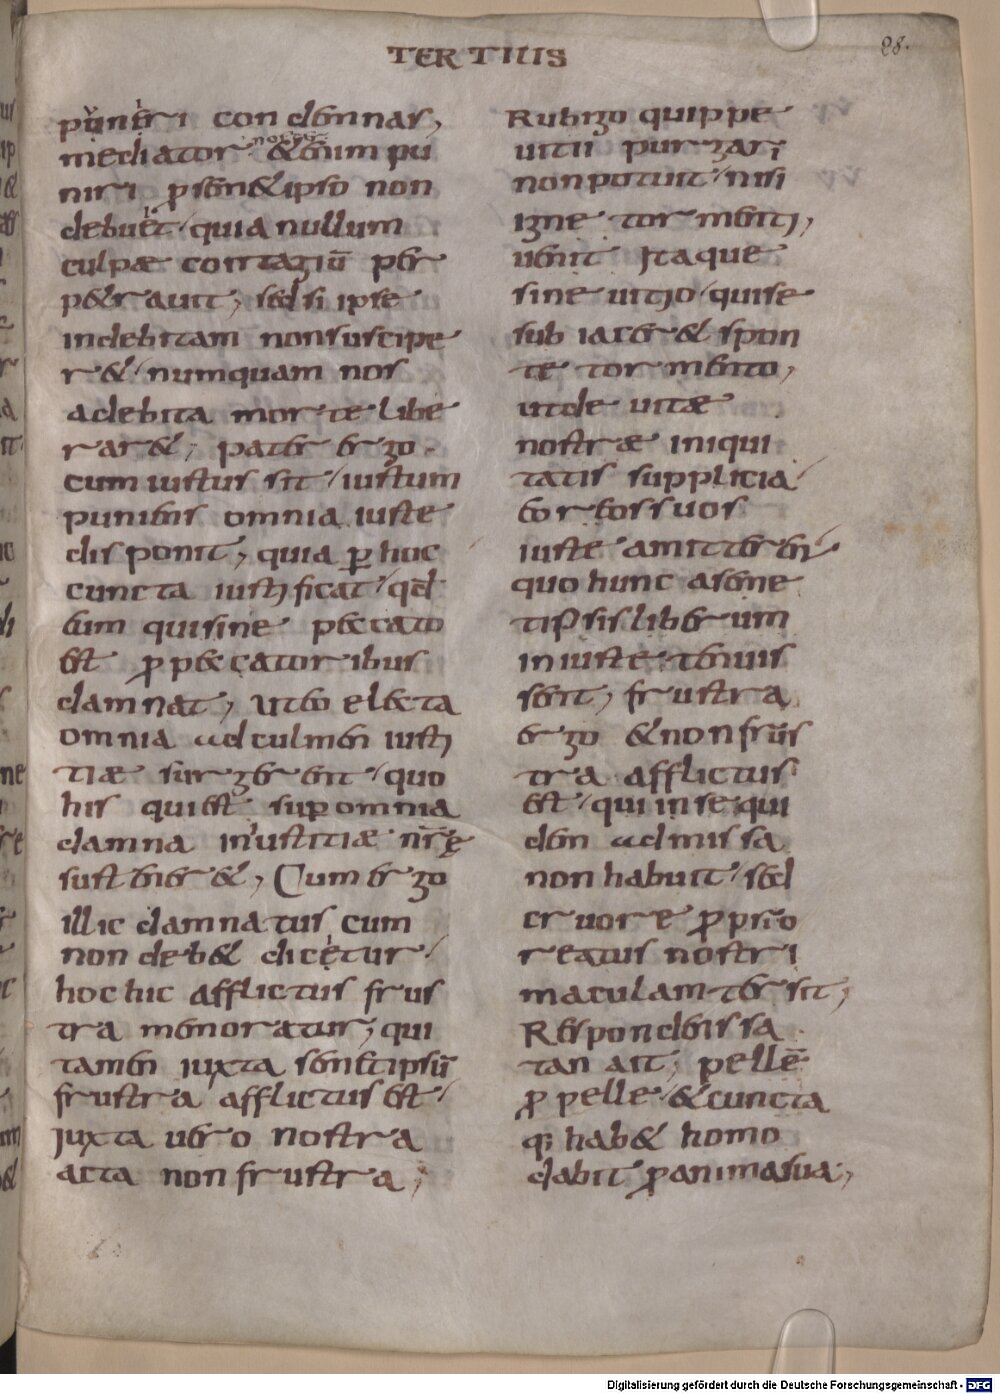 TERTIUS
28.
puneri condemnas,
mediator & enim pu
niri p semetipso non
debuit, quia nullum
culpae contagiū per
p&rauit, sed si ipse
indebitam non suscipe
r& numquam nos
a debita morte libe
rar&, pater ergo
cum iustus sit iustum
puniens omnia iuste
disponit, quia p hoc
cuncta iustificat qđ
eum qui sine peccato
est p peccatoribus
damnat, ut eo electa
omnia ad culmen iusti
tiae surgerent quo
his qui est sup omnia
damna iniustitiae nrę
sustiner&, Cum ergo
illic damnatus cum
non deb& dicetur
hoc hic afflictus frus
tra memoratur, qui
tamen iuxta semetipsū
frustra afflictus est
juxta uero nostra
acta non frustra,
Rubigo quippe
uitii purgari
non potuit nisi
igne tormenti,
uenit Itaque
sine uitio qui se
sub iacer& spon
te tormento,
ut de uitae
nostrae iniqui
tatis supplicia
eor eos suos
iuste amitteren
quo hunc a seme
tipsis liberum
iniuste tenuis
sent, frustra
ergo & non frus
tra afflictus
est qui in se qui
dem admissa
non habuit sed
cruore p prio
reatus nostri
maculam tersit,
Respondens sa
tan ait, pellē
p pelle & cuncta
q; hab& homo
dabit p anima sua,
Digitalisierung gefördert durch die Deutsche Forschungsgemeinschaft - DFG